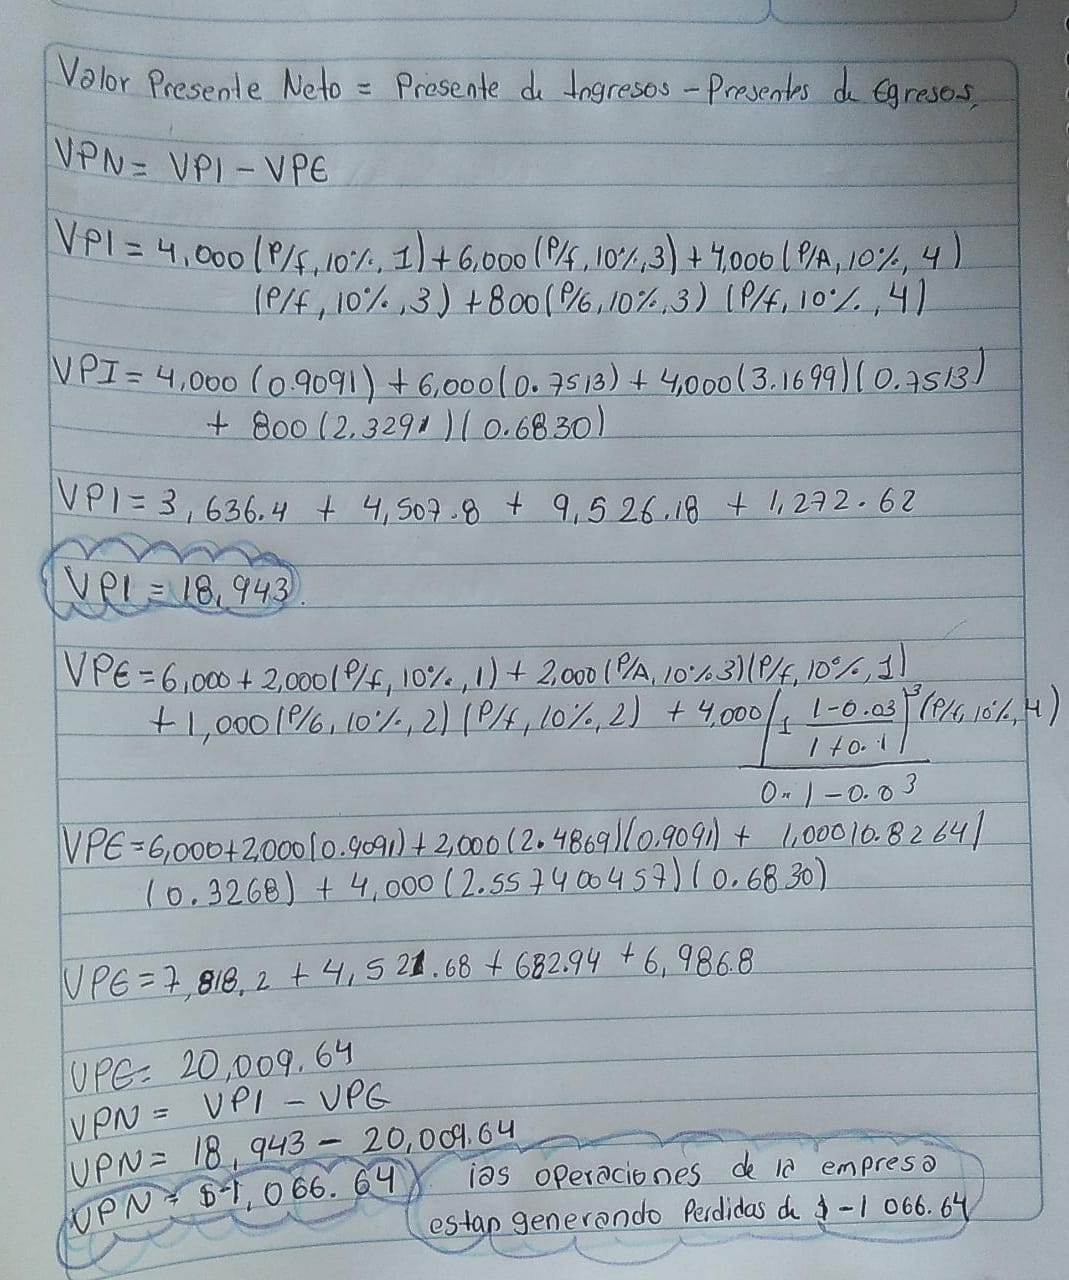 Valor Presente Neto = Presente de Ingresos - Presentes de Egresos.
VPN = VPI - VPE
VPI = 4,000 (P/f, 10%, 1) + 6,000 (P/f, 10%, 3) + 4,000 (P/A, 10%, 4)
(P/f, 10%, 3) + 800 (P/G, 10%, 3) (P/f, 10%, 4)
VPI = 4,000 (0.9091) + 6,000 (0.7513) + 4,000 (3.1699) (0.7513)
+ 800 (2.3291) (0.6830)
VPI = 3,636.4 + 4,507.8 + 9,526.18 + 1,272.62
VPI = 18,943.
VPE = 6,000 + 2,000 (P/f, 10%, 1) + 2,000 (P/A, 10% 3) (P/f, 10%, 1)
+ 1,000 (P/G, 10%, 2) (P/f, 10%, 2) + 4,000 [1 1-0.03]^3 (P/f, 10%, 4)
1+0.1
0.1-0.03
VPE = 6,000 + 2,000 (0.9091) + 2,000 (2.4869) (0.9091) + 1,000 (0.8264)
(0.3268) + 4,000 (2.557400457) (0.6830)
VPE = 7,818,2 + 4,521.68 + 682.94 + 6,986.8
VPE = 20,009.64
VPN = VPI - VPE
VPN = 18,943 - 20,009.64
VPN = $-1,066.64
las operaciones de la empresa
estan generando Perdidas de $ -1 066.64